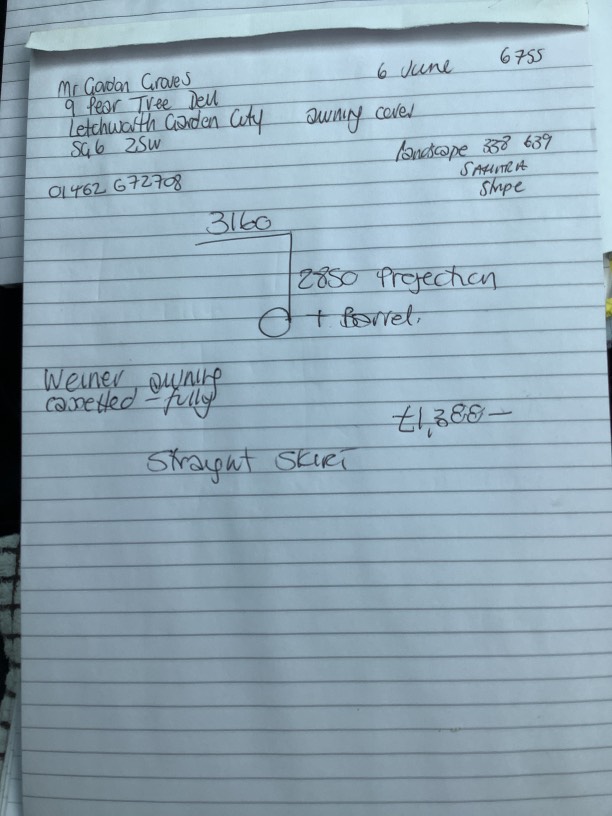 Mr Gordon Groves
6 June 6755
9 Pear Tree Dell
Letchworth Garden City
awning cover
SG6 2SW
landscape 338 639
SAHARA
Stripe
01462 672708
3160
2850 Projection
+ Barrel.
Weiner awning
cassetted – fully
£1,388–
Straight Skirt